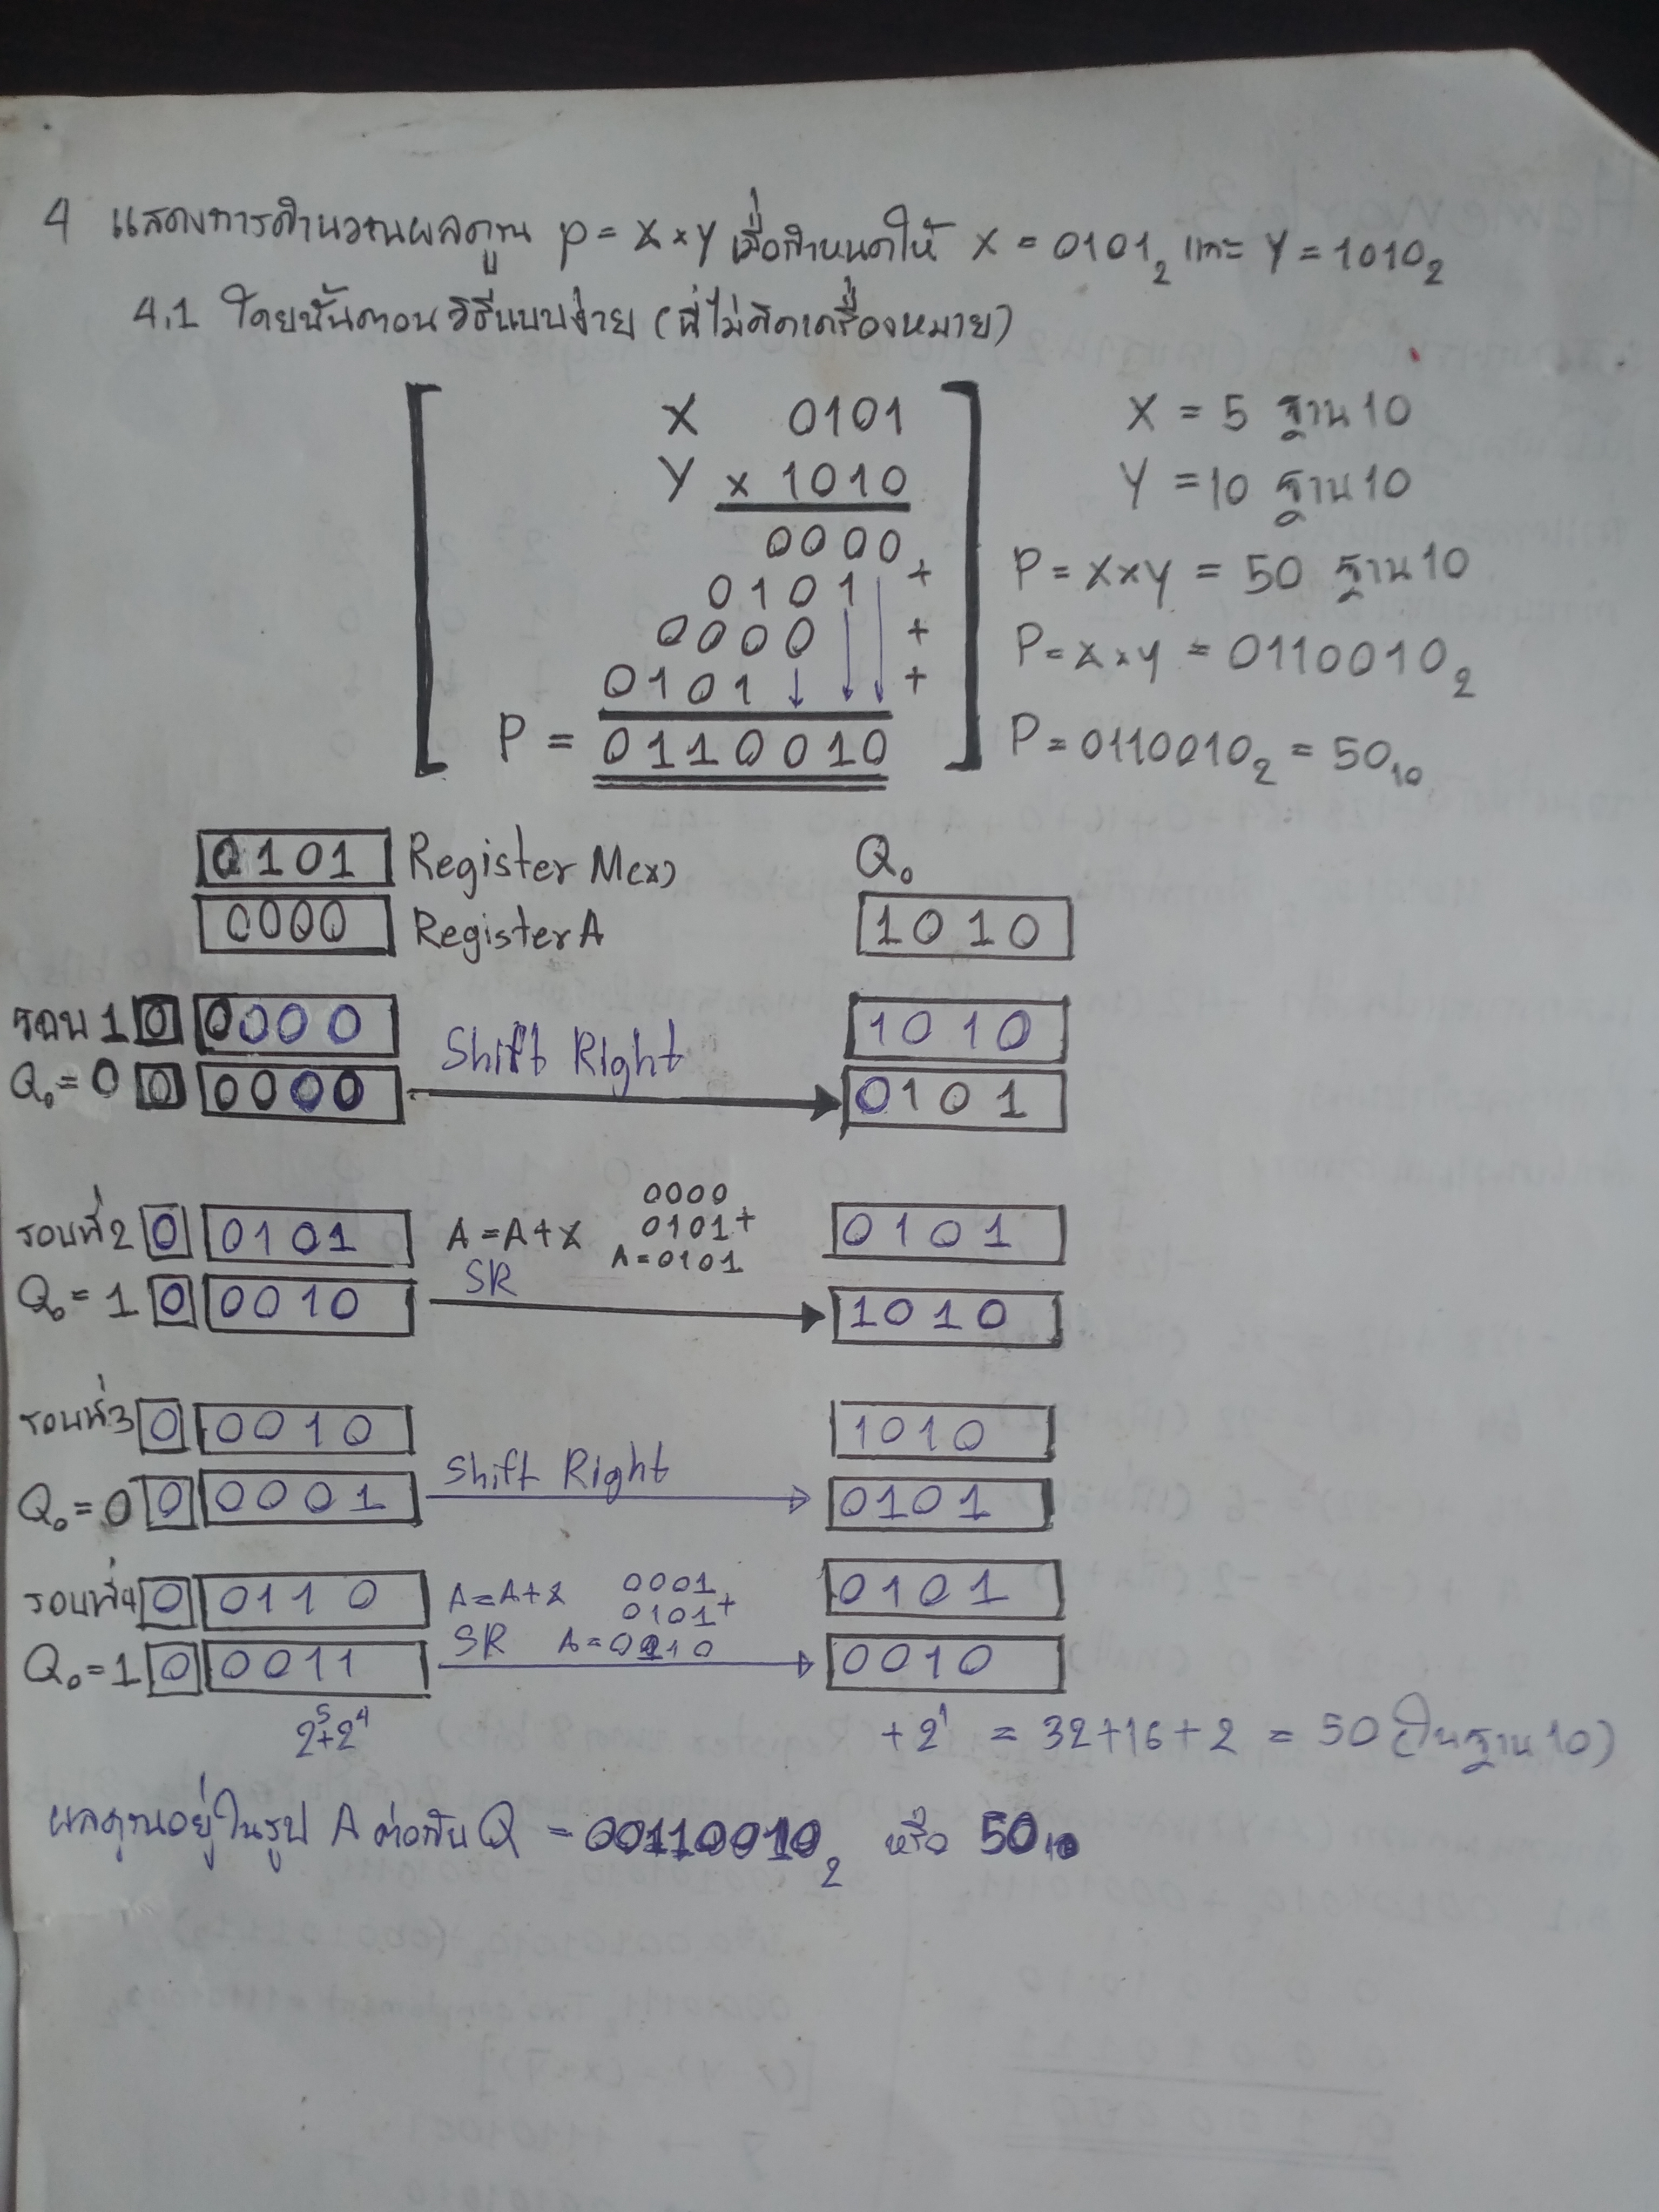 4 แสดงการคำนวณผลคูณ P = X × Y เมื่อกำหนดให้ X = 0101₂ และ Y = 1010₂
4.1 โดยขั้นตอนวิธีแบบง่าย (ที่ไม่คิดเครื่องหมาย)
X 0101
Y × 1010
0000
0101 +
0000 +
0101 +
P = 0110010
X = 5 ฐาน 10
Y = 10 ฐาน 10
P = X×Y = 50 ฐาน 10
P = X×Y = 0110010₂
P = 0110010₂ = 50₁₀
0101 Register M(x) Q₀
0000 Register A 1010
รอบ 1 0 0000 1010
Q₀ = 0 0 0000 Shift Right 0101
รอบที่ 2 0 0101 A = A + X 0000 0101+ A = 0101 0101
Q₀ = 1 0 0010 SR 1010
รอบที่ 3 0 0010 1010
Q₀ = 0 0 0001 Shift Right 0101
รอบที่ 4 0 0110 A = A + X 0001 0101+ 0101
Q₀ = 1 0 0011 SR A = 0110 0010
2⁵+2⁴ + 2¹ = 32+16+2 = 50 (ในฐาน 10)
ผลคูณอยู่ในรูป A ต่อกับ Q = 00110010₂ หรือ 50₁₀